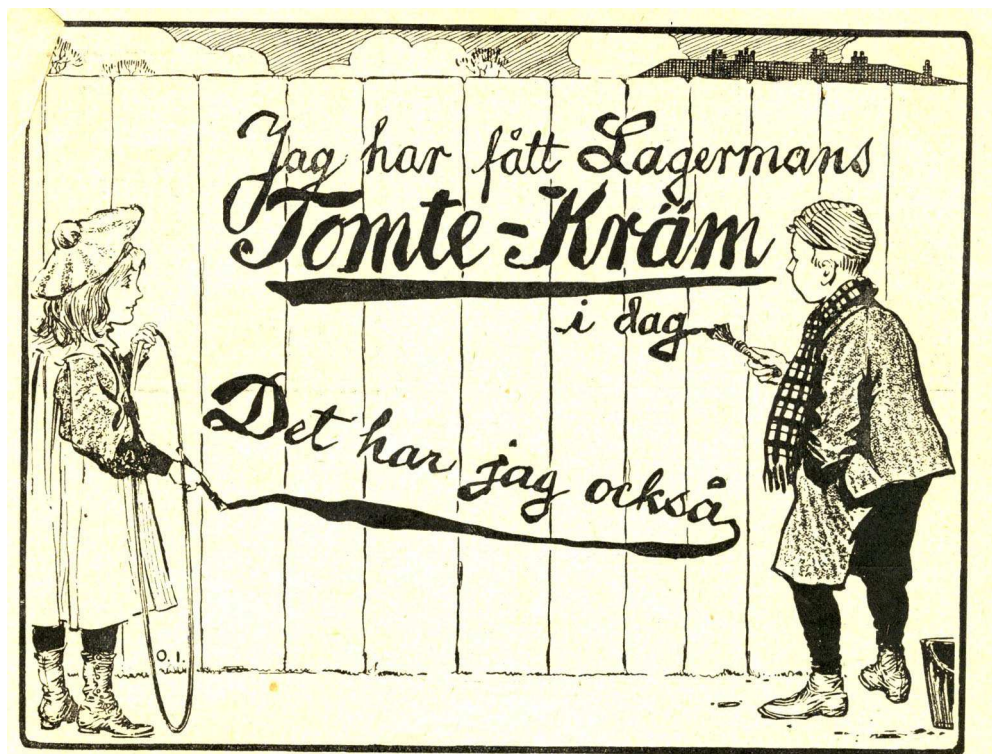 Jag har fått Lagermans
Tomte-Kräm
i dag
Det har jag också
O. I.